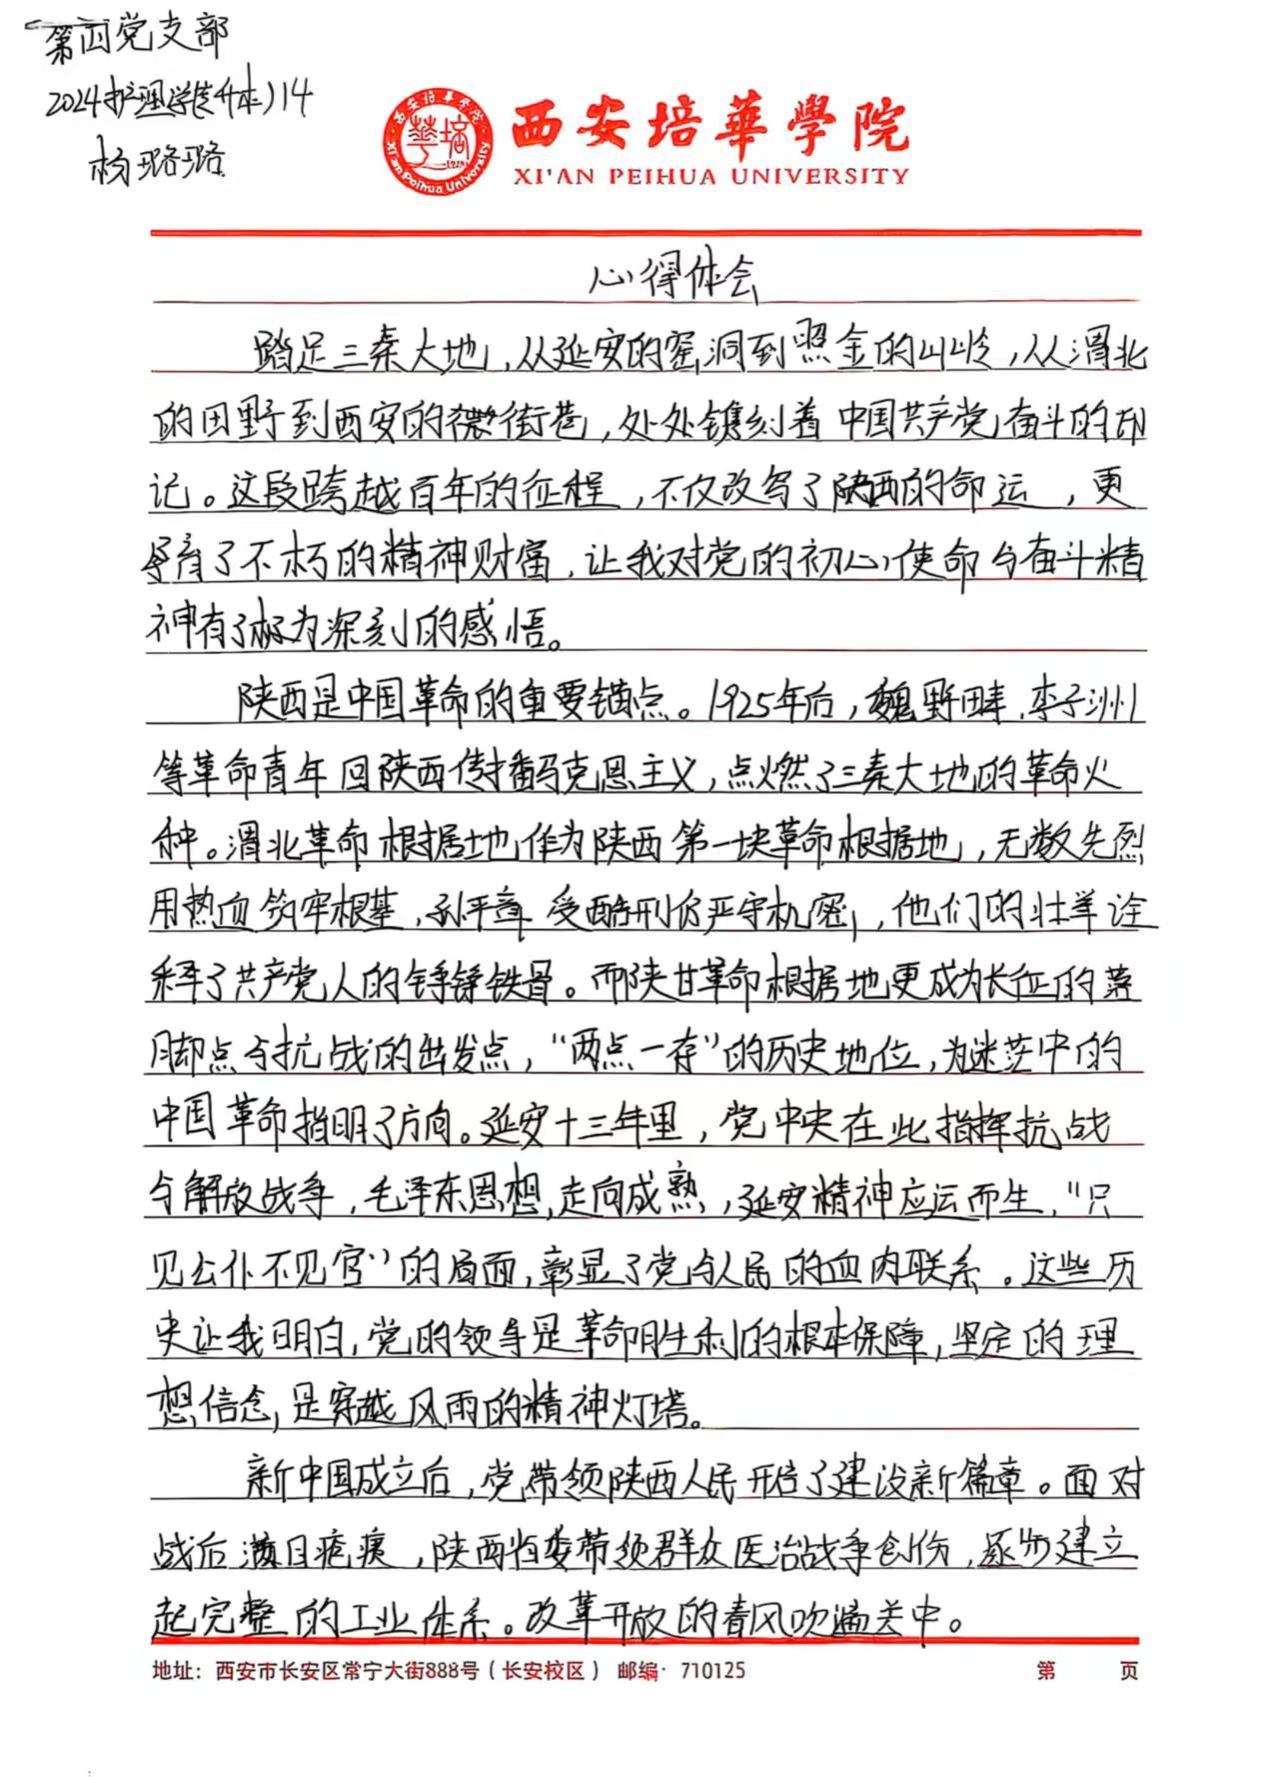 第四党支部
2024护理学(专升本)14
杨璐璐
西安培華學院
XI'AN PEIHUA UNIVERSITY
心得体会
踏足三秦大地,从延安的窑洞到照金的山岭,从渭北
的田野到西安的微街巷,处处镌刻着中国共产党奋斗的印
记。这段跨越百年的征程,不仅改写了陕西的命运,更
孕育了不朽的精神财富,让我对党的初心使命与奋斗精
神有了极为深刻的感悟。
陕西是中国革命的重要锚点。1925年后,魏野畴、李子洲
等革命青年回陕西传播马克思主义,点燃了三秦大地的革命火
种。渭北革命根据地作为陕西第一块革命根据地,无数先烈
用热血筑牢根基,孙平章受酷刑仍严守机密,他们的壮举诠
释了共产党人的铮铮铁骨。而陕甘革命根据地更成为长征的落
脚点与抗战的出发点,“两点一存”的历史地位,为迷茫中的
中国革命指明了方向。延安十三年里,党中央在此指挥抗战
与解放战争,毛泽东思想,走向成熟,延安精神应运而生,“只
见公仆不见官”的局面,彰显了党与人民的血肉联系。这些历
史让我明白,党的领导是革命胜利的根本保障,坚定的理
想信念,是穿越风雨的精神灯塔。
新中国成立后,党带领陕西人民开启了建设新篇章。面对
战后满目疮痍,陕西省委带领群众医治战争创伤,逐步建立
起完整的工业体系。改革开放的春风吹遍关中。
地址:西安市长安区常宁大街888号(长安校区) 邮编: 710125 第 页